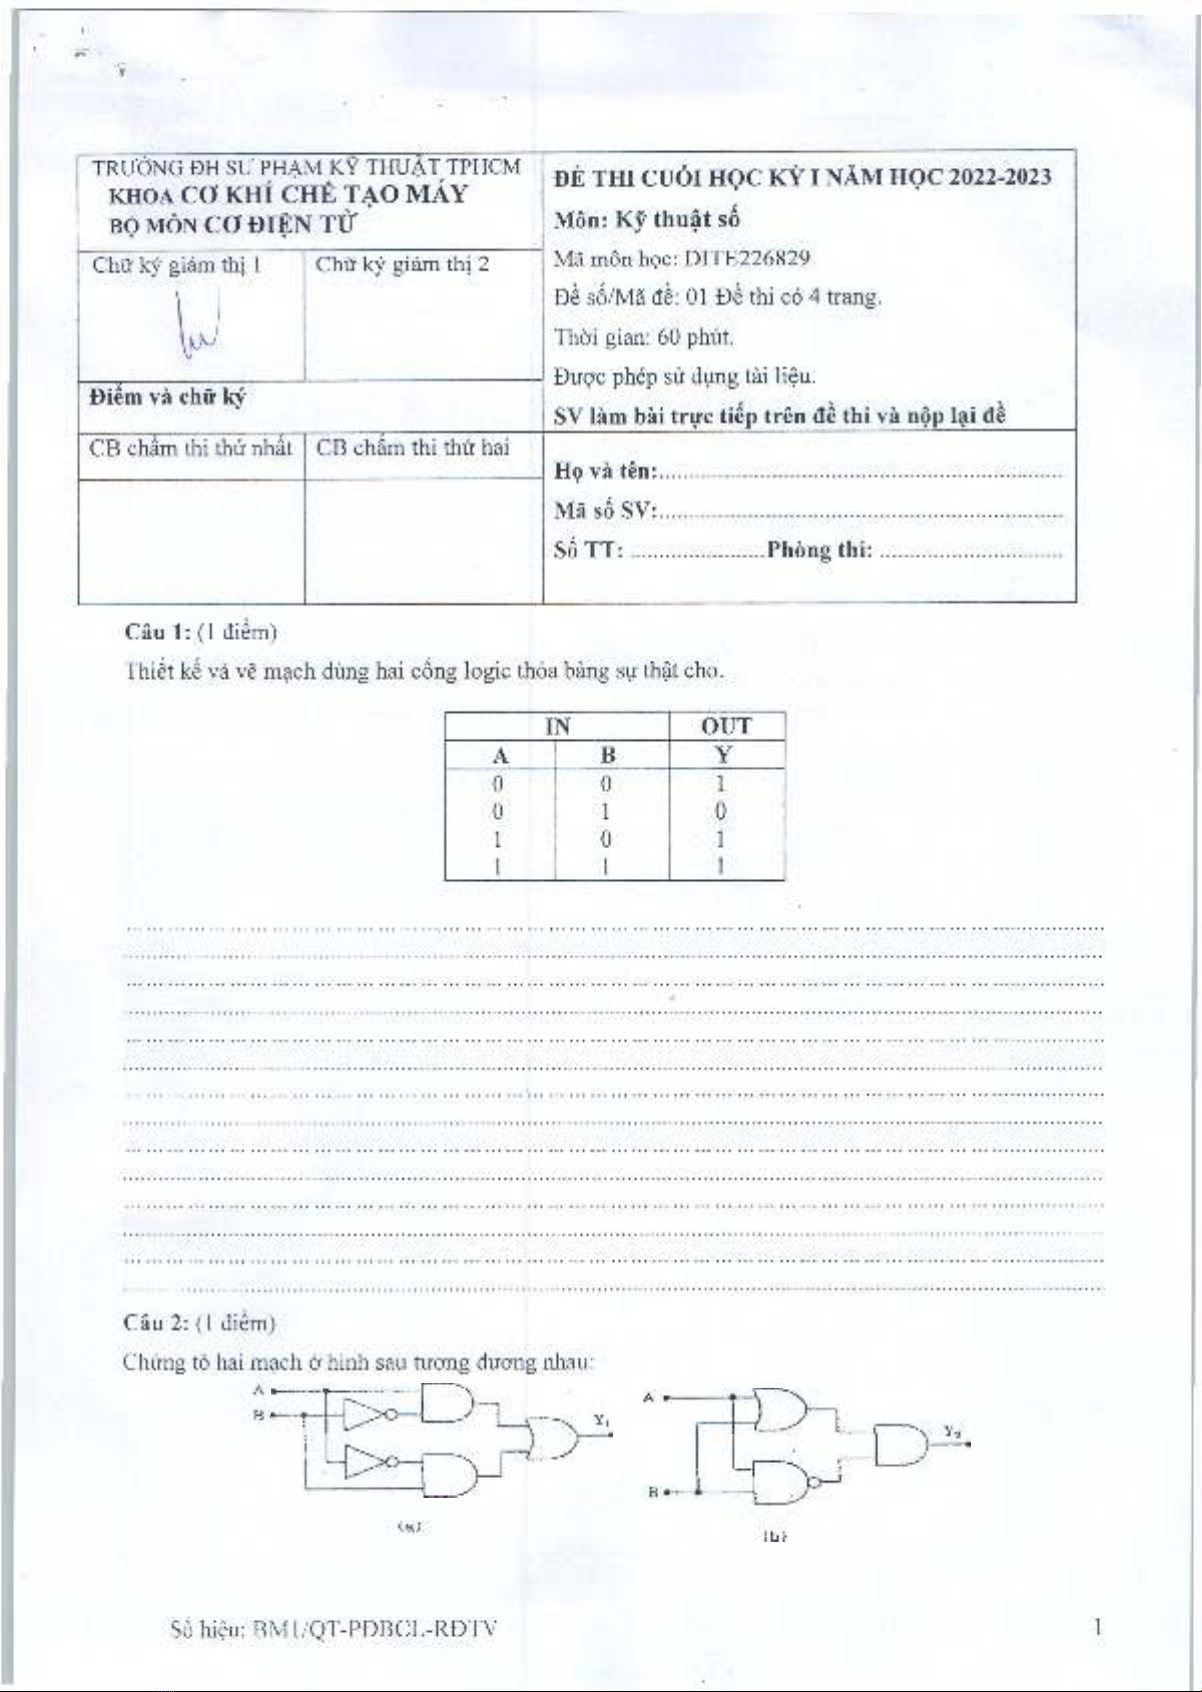 TRƯỜNG ĐH SƯ PHẠM KỸ THUẬT TPHCM
KHOA CƠ KHÍ CHẾ TẠO MÁY
BỘ MÔN CƠ ĐIỆN TỬ
Chữ ký giám thị 1
Chữ ký giám thị 2
Điểm và chữ ký
CB chấm thi thứ nhất
CB chấm thi thứ hai
ĐỀ THI CUỐI HỌC KỲ I NĂM HỌC 2022-2023
Môn: Kỹ thuật số
Mã môn học: DITE226829
Đề số/Mã đề: 01 Đề thi có 4 trang.
Thời gian: 60 phút.
Được phép sử dụng tài liệu.
SV làm bài trực tiếp trên đề thi và nộp lại đề
Họ và tên:
Mã số SV:
Số TT: Phòng thi:
Câu 1: (1 điểm)
Thiết kế và vẽ mạch dùng hai cổng logic thỏa bảng sự thật cho.
IN OUT
A B Y
0 0 1
0 1 0
1 0 1
1 1 1
Câu 2: (1 điểm)
Chứng tỏ hai mạch ở hình sau tương đương nhau:
A
B
Y₁
(a)
A
B
Y₂
(b)
Số hiệu: BM1/QT-PĐBCL-RĐTV
1